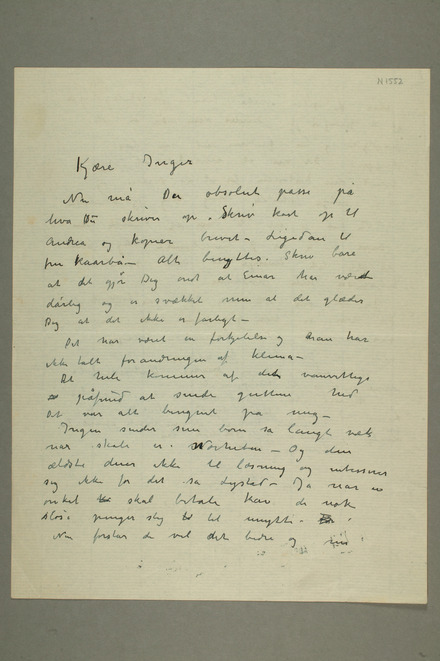 N 1552
Kjære Inger
Nu må Du absolut passe på
hva Du skriver op. Skriv kort op til
Andrea og kopier brevet – Ligedan til
fru Kaarbø – Alt benyttes. Skriv bare
at det gjør Dig ondt at Einar har været
dårlig og er svækket men at det glæder
Dig at det ikke er farligt –
Det har været en forkjølelse og han har
ikke tålt forandringen af klima –
Det hele kommer af det vanvittige
påfund at sende guttene ned
Det var alt betinget på mig –
Ingen sender sine børn så langt væk
når skole er i – Og den
ældste duer ikke til læsning og interesserer
sig ikke for det så – Ja når en
onkel skal betale kan de nok
sløse penger sig til unytte –
Nu forstår de vel det bedre og